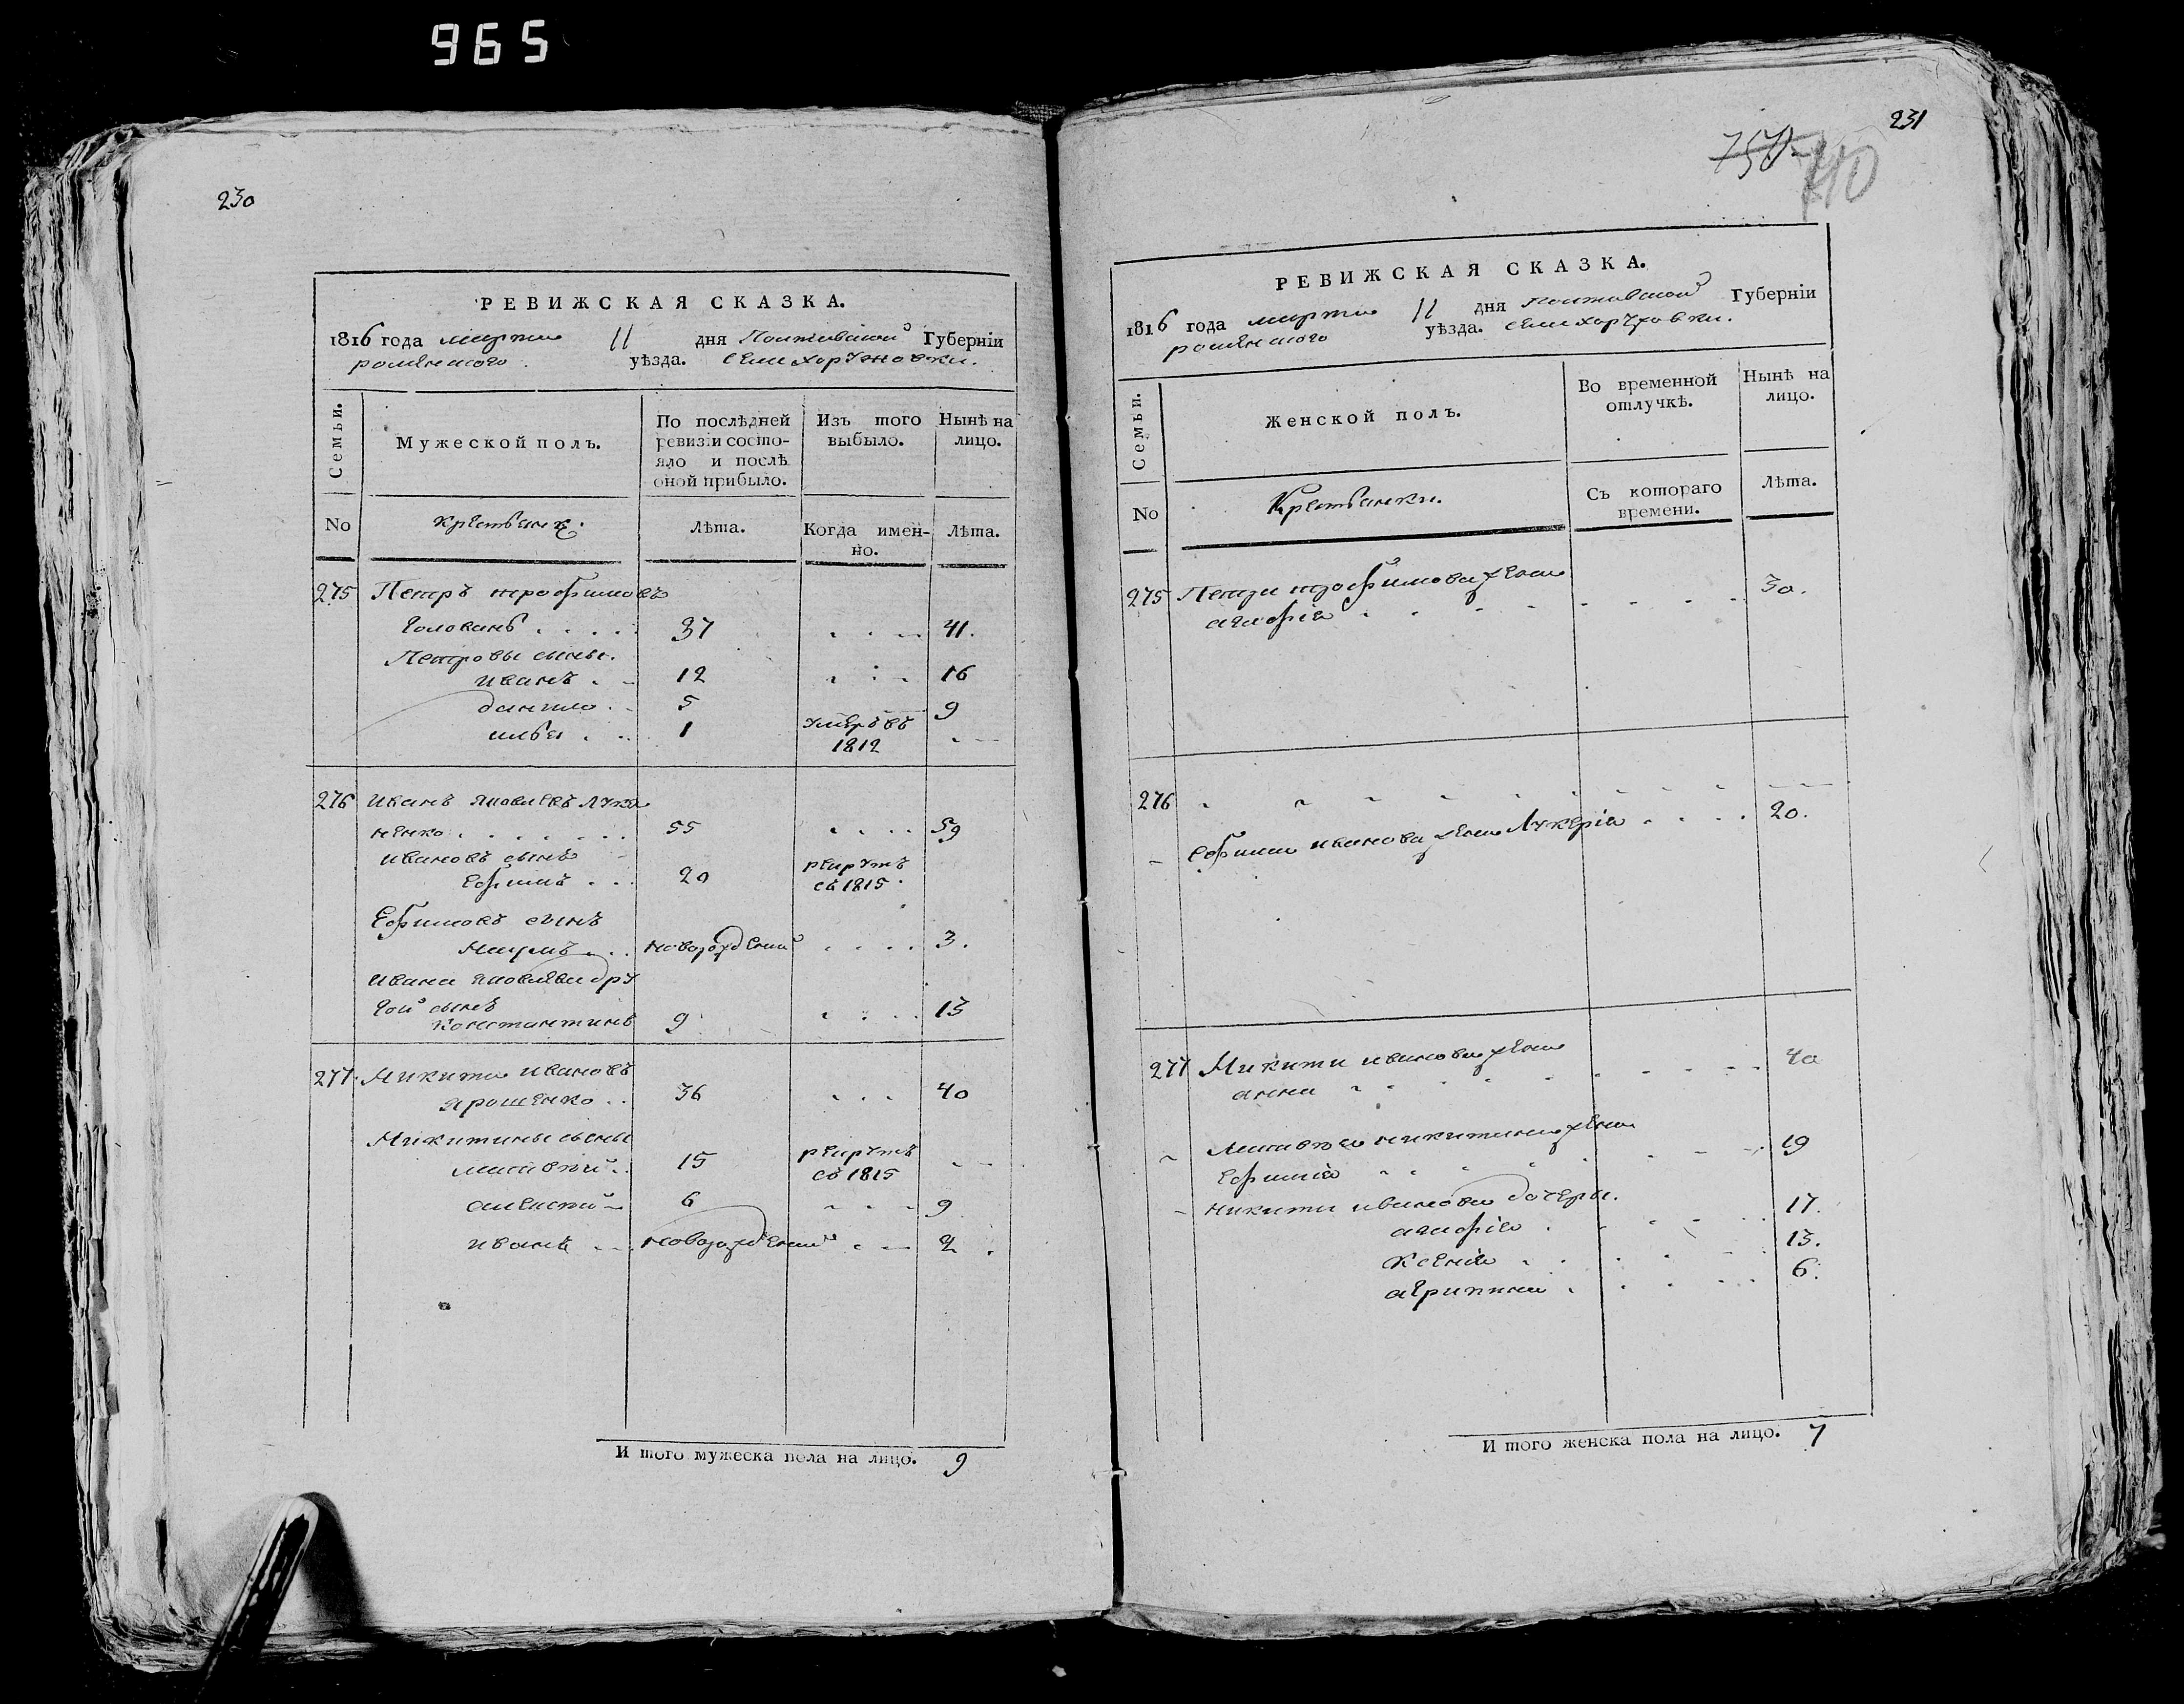 965
230
РЕВИЖСКАЯ СКАЗКА.
1816 года марта 11 дня Полтавской Губерніи
роменского уѣзда. села хоружовки.
Семьи.
Мужеской полъ.
По послѣдней ревизіи состояло и послѣ оной прибыло.
Изъ того выбыло.
Нынѣ на лицо.
No
крестьянѣ.
Лѣта.
Когда именно.
Лѣта.
275 Петръ трофимовъ
Голованъ . . . . 37 . . . 41.
Петровы сыны.
иванъ . . 12 . . . 16
данило . . 5 9
илья . . 1 умеръ въ
1812
276 иванъ яковлевъ
ненко . . . . . . 55 . . . . 59
ивановъ сынъ
Ефимъ . . . 20 рекрутъ
съ 1815.
Ефимовъ сынъ
Наумъ . . . новорожденый . . . . 3.
ивана яковлева дру
гой сынъ
Константинъ 9 . . . . 13
277. Микита ивановъ
ярошенко . . 36 . . . 40
Микитины сыны
15 рекрутъ
съ 1815
алексѣй 6 . . . 9
иванъ . . новорожденый . . 2.
И того мужеска пола на лицо. 9
231
750 740
РЕВИЖСКАЯ СКАЗКА.
1816 года марта 11 дня Полтавской Губерніи
роменского уѣзда. села хоружовки.
Семьи.
Женской полъ.
Во временной отлучкѣ.
Нынѣ на лицо.
No
Крестьянки.
Съ котораго времени.
Лѣта.
275 Петра трофимова жена
агафія . . . . . . . . 30.
276
Ефима иванова жена Лукерія . . . . 20.
277 Микиты иванова жена
анна . . . . . . . . . 40
никитина жена
Ефимія . . . . . . . 19
никиты иванова дочери.
агафія . . . . . 17.
Ксенія . . . . . 13.
агрипина . . . . . 6.
И того женска пола на лицо. 7